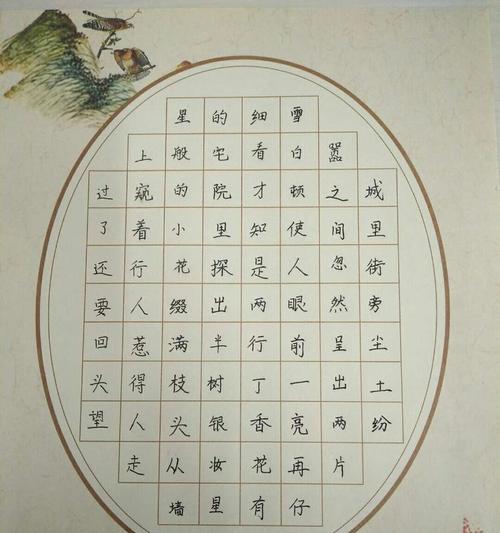 城里街旁尘土纷
嚣之间忽然呈出两片
雪白顿使人眼前一亮再仔
细看才知是两行丁香花有
的宅院里探出半树银妆星
星般的小花缀满枝头从墙
上窥着行人惹得人走
过了还要回头望